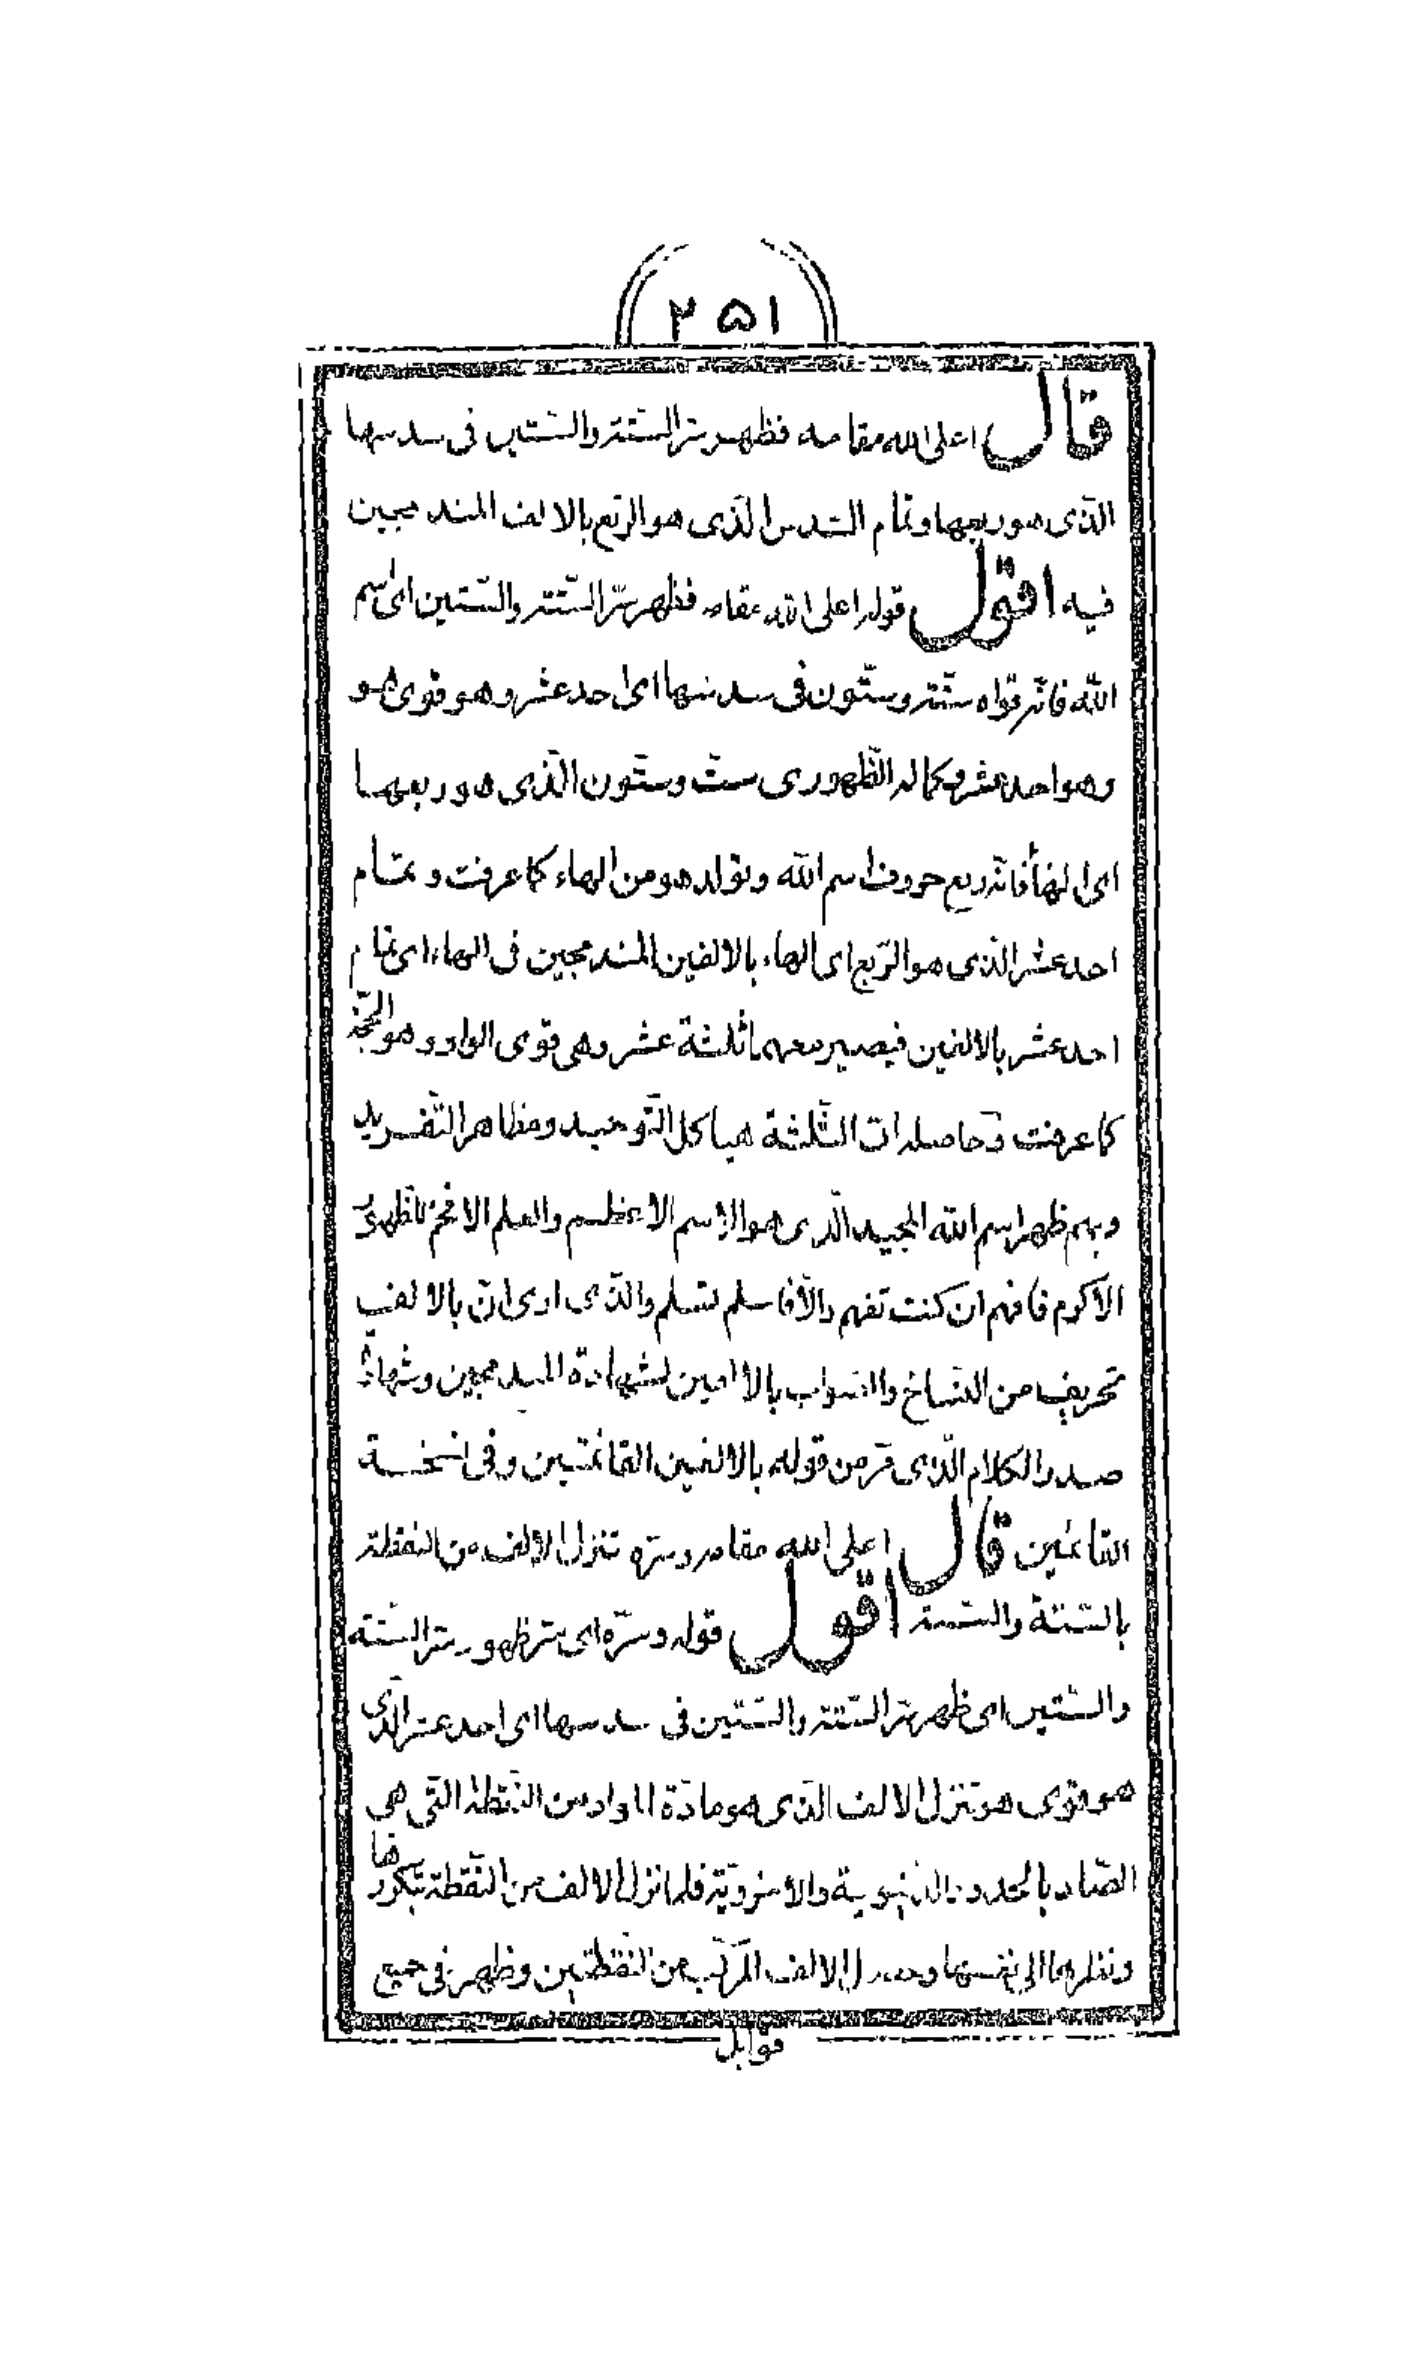 ٢٥١
قال اعلى الله مقامه فظهر سرّ الستة والستين فى سدسها
الذى هو ربعها وتمام السّدس الذى هو الربع بالالف المندمجين
فيه اقول قوله اعلى الله مقامه فظهر سرّ الستّة والستّين اى اسم
الله فانّه قواه ستّة وستّون فى سدسها اى احد عشر وهو قوى هو
وهو احد عشر وكماله الظهورى ستّ وستّون الذى هو ربعها
اى الهاء فانّه ربع حروف اسم الله وتولد هو من الهاء كما عرفت وتمام
احد عشر الذى هو الرّبع اى الهاء بالالفين المندمجين فى الهاء اى تمام
احد عشر بالالفين فيصير معهما ثلثة عشر وهى قوى الواو وهو الحجّة
كما عرفت وحاصله ان الثّلثة هياكل التّوحيد ومظاهر التّفريد
وبهم ظهر اسم الله المجيد الّذى هو الاسم الاعظم والعلم الافخم
الاكرم فافهم ان كنت تفهم والّا فاسلم تسلم والذّى ارى انّ بالالف
تحريف من النسّاخ والصواب بالالفين لشهادة المندمجين وشهادة
صدر الكلام الّذى مرّ من قوله بالالفين القائمتين وفى نسخة
القائمين قال اعلى الله مقامه وسرّه تنزل الالف من النقطة
بالستّة والستة اقول قوله وسرّه اى سرّ ظهور سرّ الستّة
والستّين اى ظهر سرّ الستّة والستّين فى سدسها اى احد عشر الذى
هو قوى هو تنزل الالف الذى هو مادّة المواد من النّقطة التّى هى
الصّاد بالحدود الدّنيوية والاخرويّة فلما نزل الالف من النّقطة بتكررها
ونظرها الى نفسها وحصل الالف المركّب من نقطتين وظهر فى جميع
قوابل